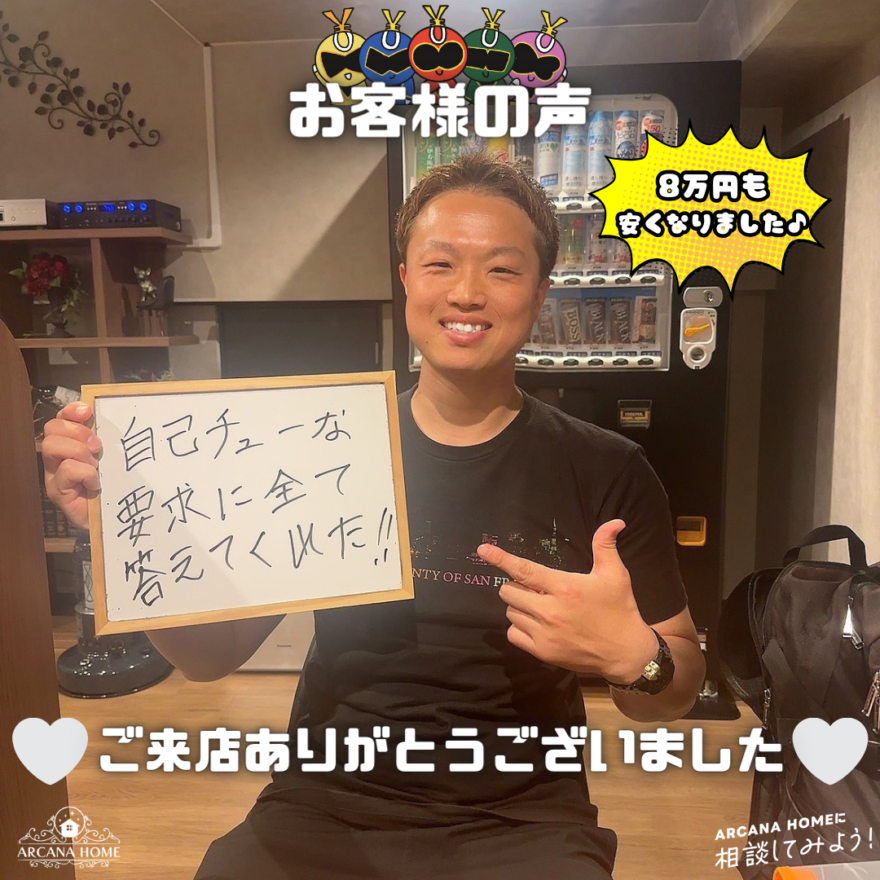 お客様の声
8万円も
安くなりました♪
自己チューな
要求に全て
答えてくれた!!
NTY OF SAN FR
ご来店ありがとうございました
ARCANA HOME
ARCANA HOMEに
相談してみよう!